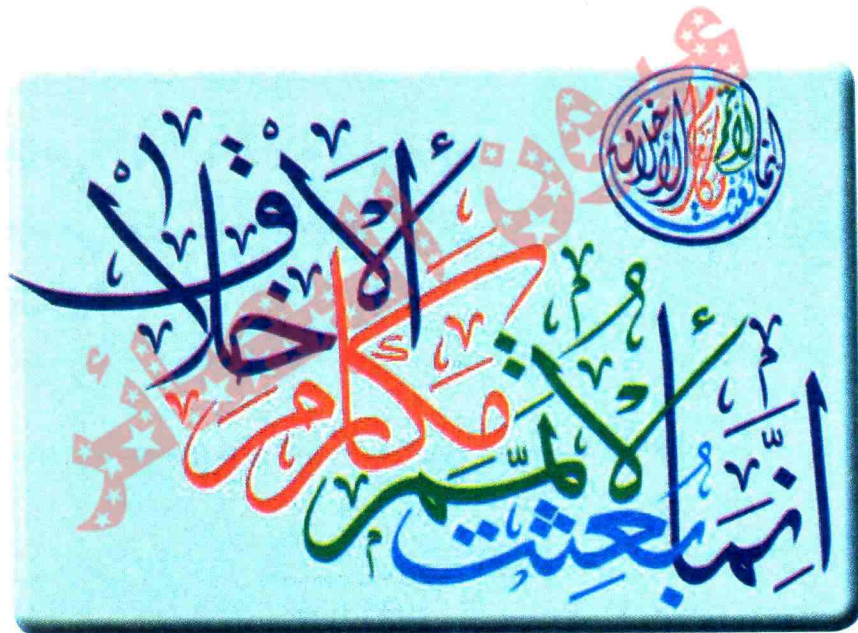 إِنَّمَا بُعِثْتُ لِأُتَمِّمَ مَكَارِمَ الْأَخْلَاقِ
إنما بعثت لأتمم مكارم الأخلاق
عيون البصائر